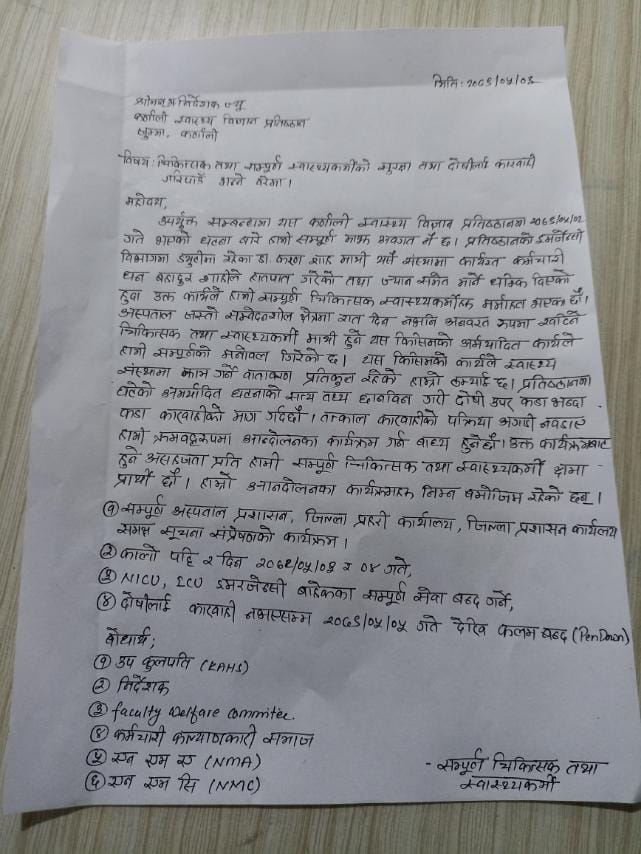 मिति: २०७९/०५/०३
श्रीमान निर्देशक ज्यू
कर्णाली स्वास्थ्य विज्ञान प्रतिष्ठान
जुम्ला, कर्णाली
विषय: चिकित्सक तथा सम्पूर्ण स्वास्थ्यकर्मीको सुरक्षा तथा दोषीलाई कारवाही
गरिपाउँ भन्ने बारेमा।
महोदय,
उपर्युक्त सम्बन्धमा यस कर्णाली स्वास्थ्य विज्ञान प्रतिष्ठानमा २०७९/०५/०२
गते भएको घटना बारे हामी सम्पूर्ण माझ अवगत नै छ। प्रतिष्ठानको इमर्जेन्सी
विभागमा ड्युटीमा रहेका डा. शाह माथी यसै संस्थामा कार्यरत कर्मचारी
धन बहादुर शाहीले हातपात गरेको तथा ज्यान समेत मार्ने धम्कि दिएको
हुदा उक्त कार्यले हामी सम्पूर्ण चिकित्सक स्वास्थ्यकर्मीहरु मर्माहत भएका छौं।
अस्पताल जस्तो सम्वेदनशील क्षेत्रमा रात दिन नभनि अनवरत रुपमा खटिने
चिकित्सक तथा स्वास्थ्यकर्मी माथी हुने यस किसिमको अमर्यादित कार्यले
हामी सम्पूर्णको मनोवल गिरेको छ। यस किसिमको कार्यले स्वास्थ्य
संस्थामा काम गर्ने वातावरण प्रतिकूल रहेको हाम्रो ठम्याई छ। प्रतिष्ठानमा
घटेको अमर्यादित घटनाको सत्य तथ्य छानविन गरी दोषी उपर कडा भन्दा
कडा कारवाहीको माग गर्दछौं। तत्काल कारवाहीको प्रक्रिया अगाडी नवढाए
हामी क्रमवद्धरुपमा आन्दोलनका कार्यक्रम गर्न बाध्य हुनेछौं। उक्त कार्यक्रमबाट
हुने असहजता प्रति हामी सम्पूर्ण चिकित्सक तथा स्वास्थ्यकर्मी क्षमा
प्रार्थी छौं। हाम्रो आन्दोलनका कार्यक्रमहरु निम्न बमोजिम रहेको छन्।
① सम्पूर्ण अस्पताल प्रशासन, जिल्ला प्रहरी कार्यालय, जिल्ला प्रशासन कार्यालय
समक्ष सूचना संप्रेषणको कार्यक्रम।
② कालो पट्टि २ दिन २०७९/०५/०३ र ०४ गते,
③ NICU, ICU इमरजेन्सी बाहेकका सम्पूर्ण सेवा बन्द गर्ने,
④ दोषीलाई कारवाही नभएसम्म २०७९/०५/०५ गते देखि कलम बन्द (Pen Down)
बोधार्थ;
① उप कुलपति (KAHS)
② निर्देशक
③ faculty welfare commitee.
④ कर्मचारी कल्याणकारी समाज
⑤ एन एम ए (NMA)
⑥ एन एम सि (NMC)
- सम्पूर्ण चिकित्सक तथा
स्वास्थ्यकर्मी